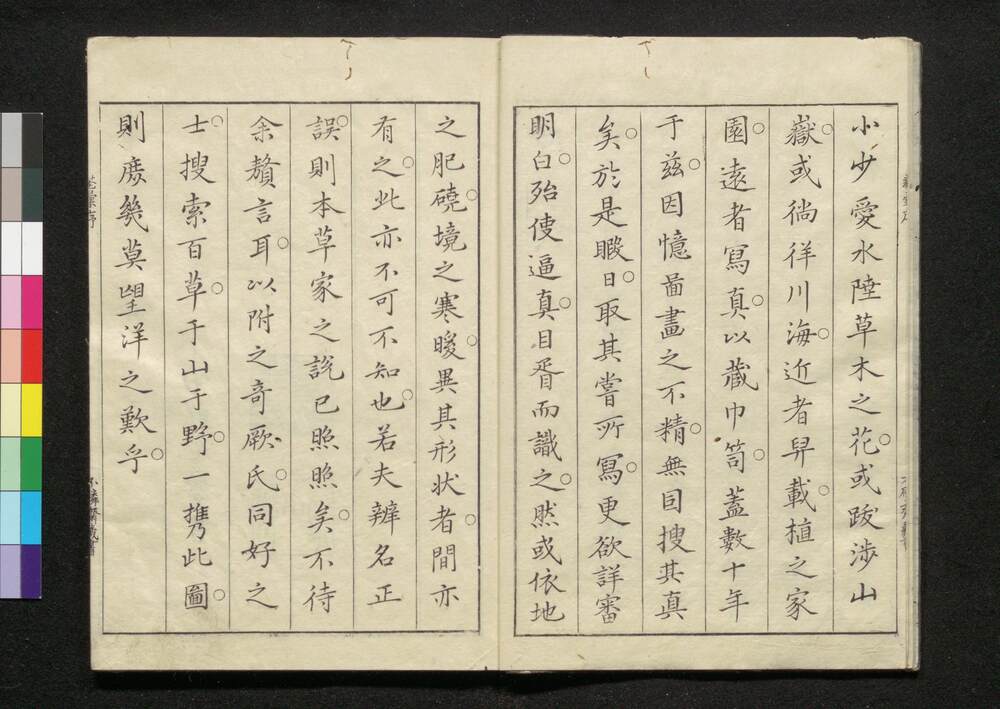 小少愛水陸草木之花○或跋涉山
嶽○或徜徉川海○近者舁載○植之家
園○遠者寫真○以藏巾笥○蓋數十年
于兹○因憶啚畫之不精○無由搜其真
矣○於是暇日○取其嘗所寫○更欲詳審
明白○殆使逼真○目胥而識之○然或依地
之肥磽○境之寒暖○異其形状者○間亦
有之○此亦不可不知也○若夫辨名正
誤○則本草家之説已照照矣○不待
余贅言耳○以附之奇厥氏○同好之
士○搜索百草○于山于野○一携此圖○
則庶幾莫望洋之歎乎○